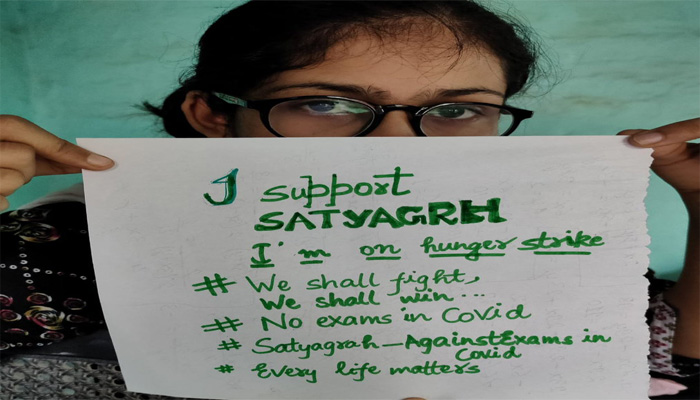 I support
SATYAGRH
I'm on hunger strike
# We shall fight,
We shall win ...
# No exams in Covid
# Satyagrah-AgainstExams in
Covid
# Every life matters